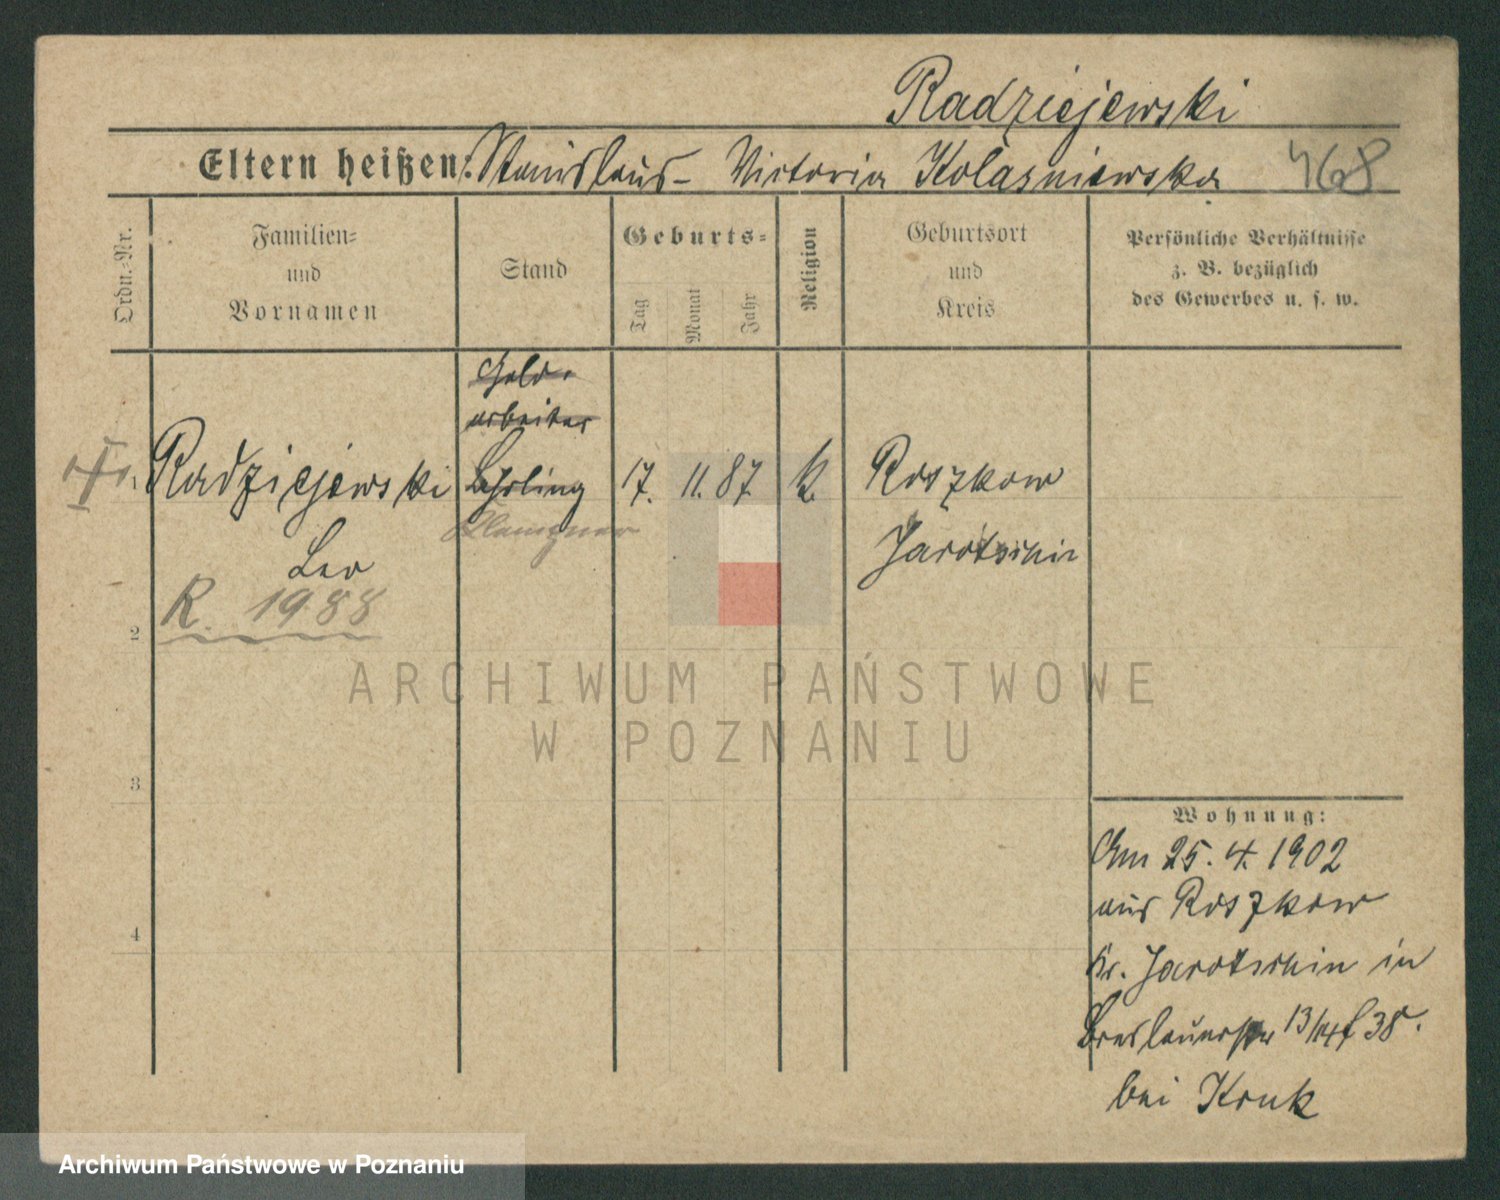 Radziejewski
Eltern heißen: Stanislaus - Victoria Kolasniewska 468
Ordn.-Nr.
Familien-
und
Vornamen
Stand
Geburts-
Tag
Monat
Jahr
Religion
Geburtsort
und
Kreis
Persönliche Verhältnisse
z. B. bezüglich
des Gewerbes u. s. w.
Gold-
arbeiter
1 Radziejewski Lehrling 17. 11. 87. k Roszkow
Klempner
Leo Jarotschin
R. 1988
2
3
4
Wohnung:
Am 25. 4. 1902
aus Roszkow
Kr. Jarotschin in
Breslauerstr 13/14 f 38.
bei Kruk
ARCHIWUM PAŃSTWOWE
W POZNANIU
Archiwum Państwowe w Poznaniu